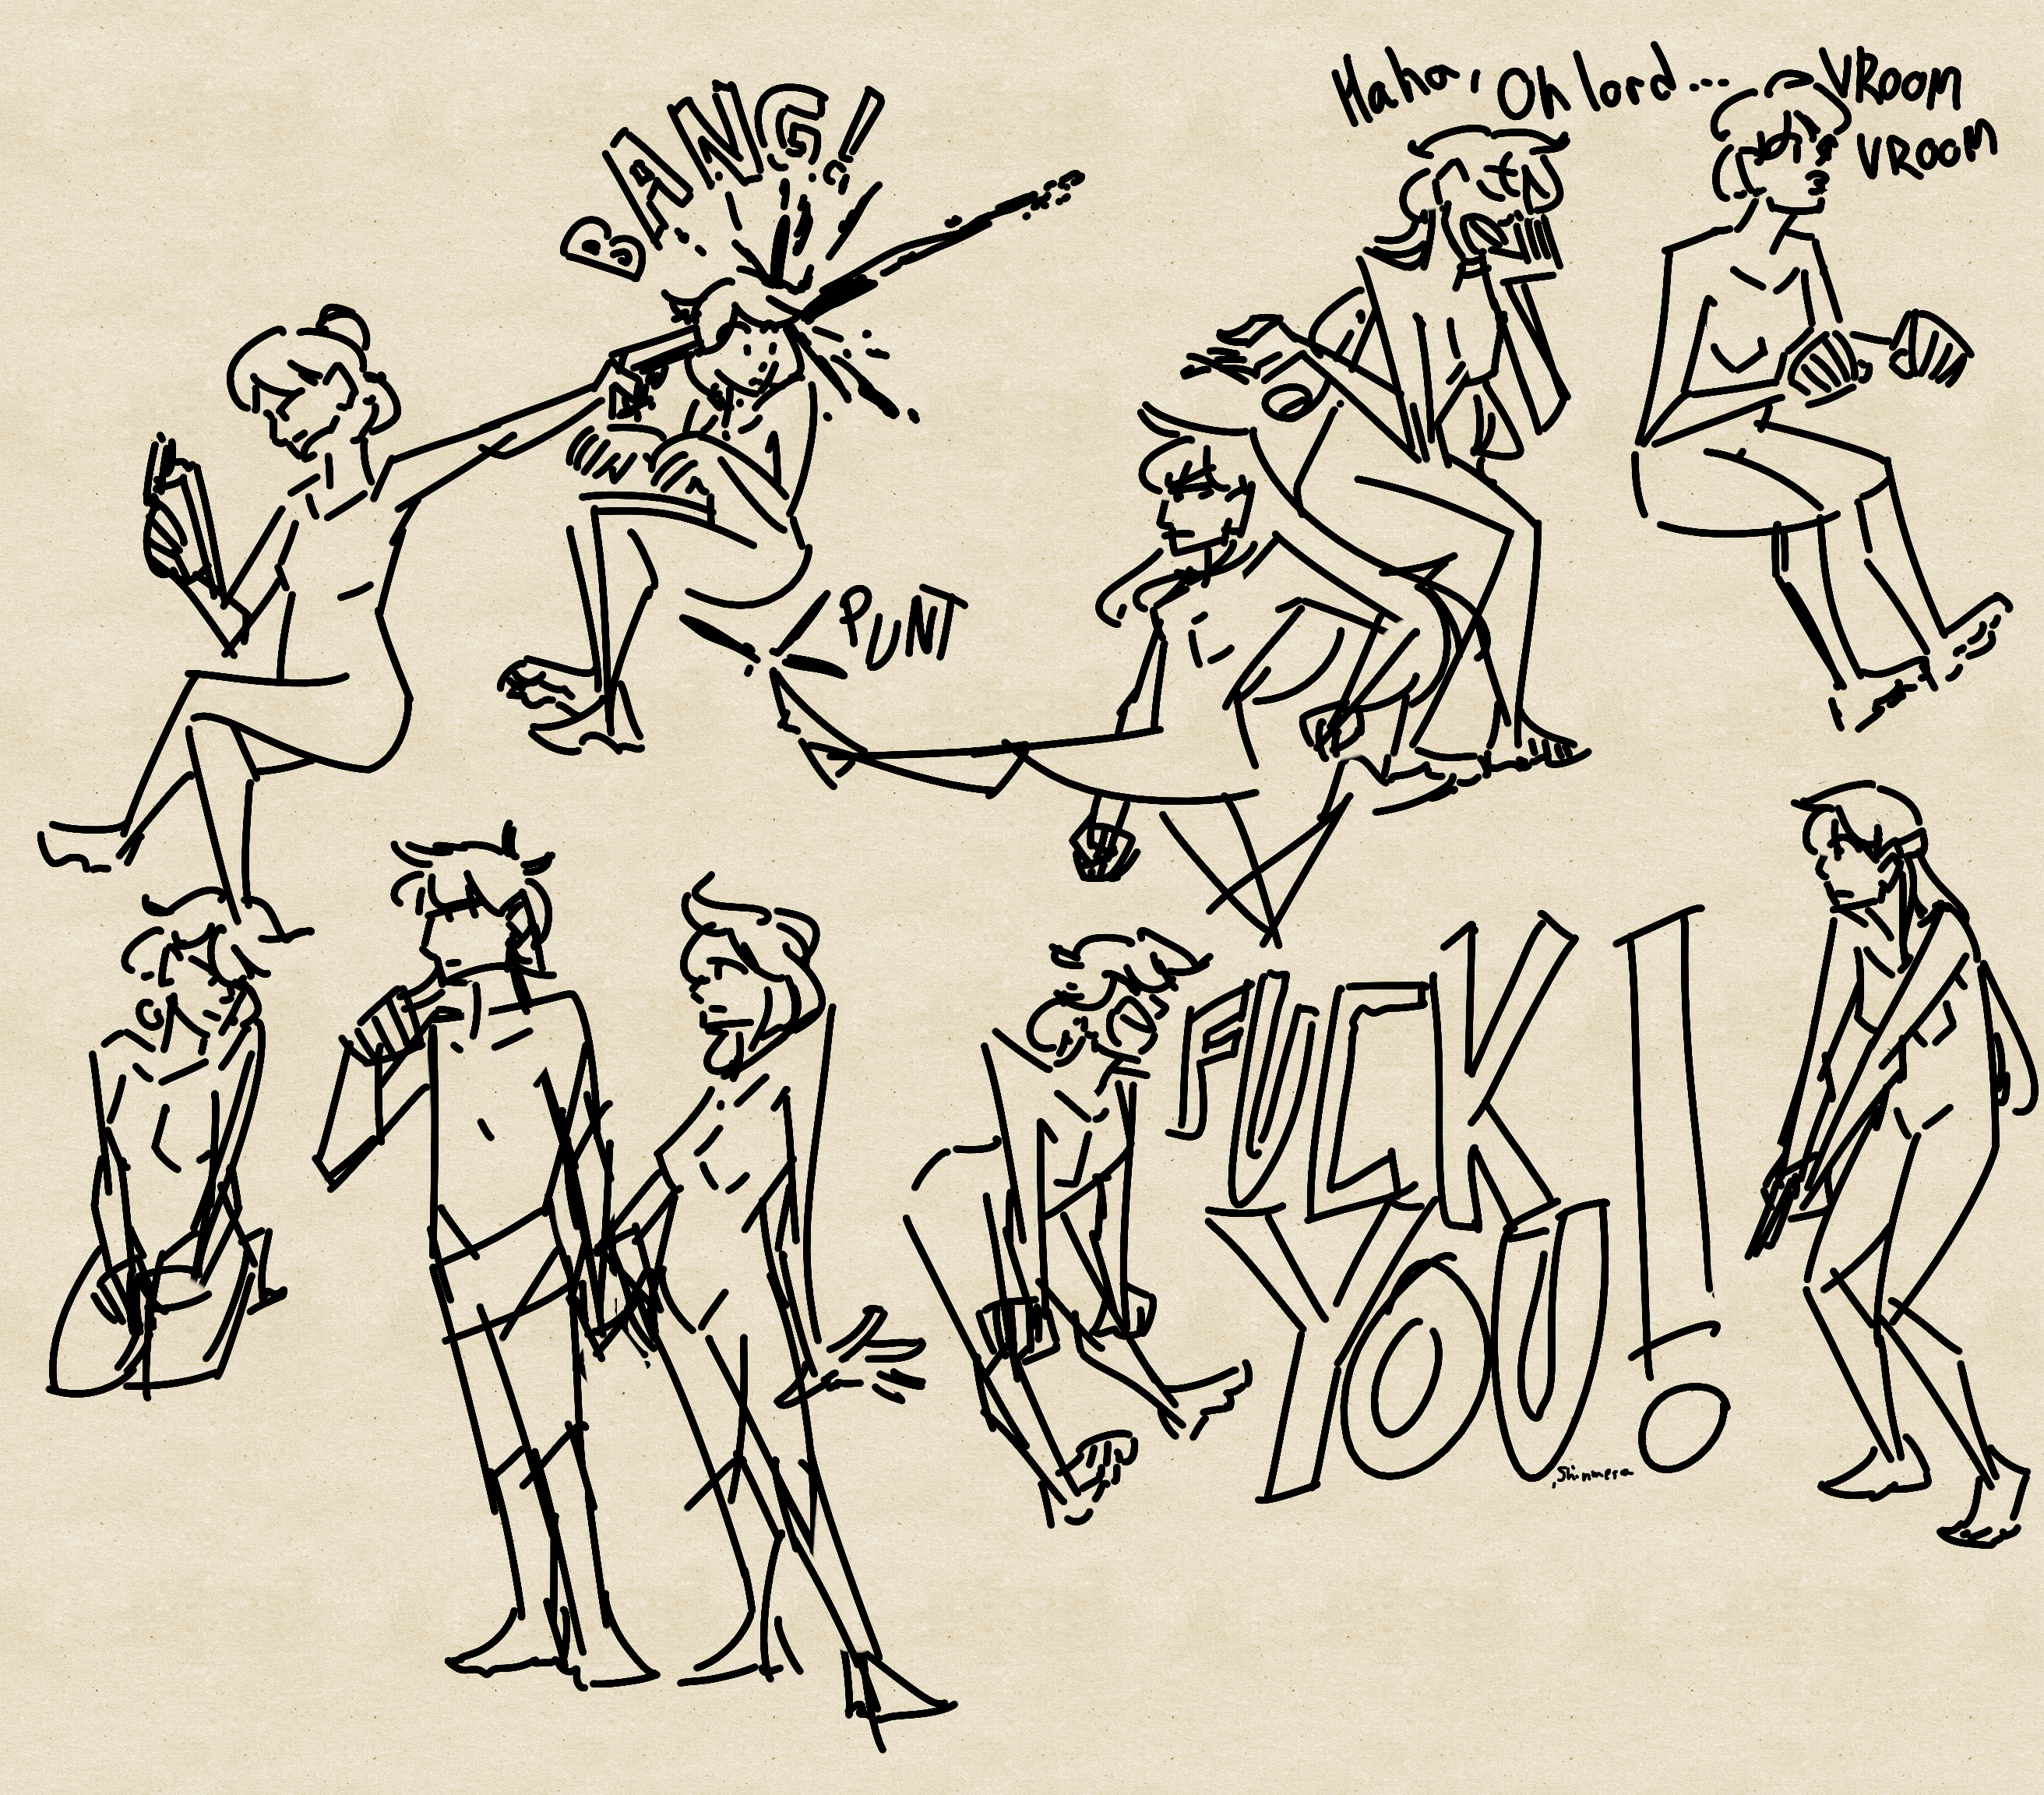 BANG!
Haha, Oh lord...
VROOM
VROOM
PUNT
FUCK
YOU!
Shinmera